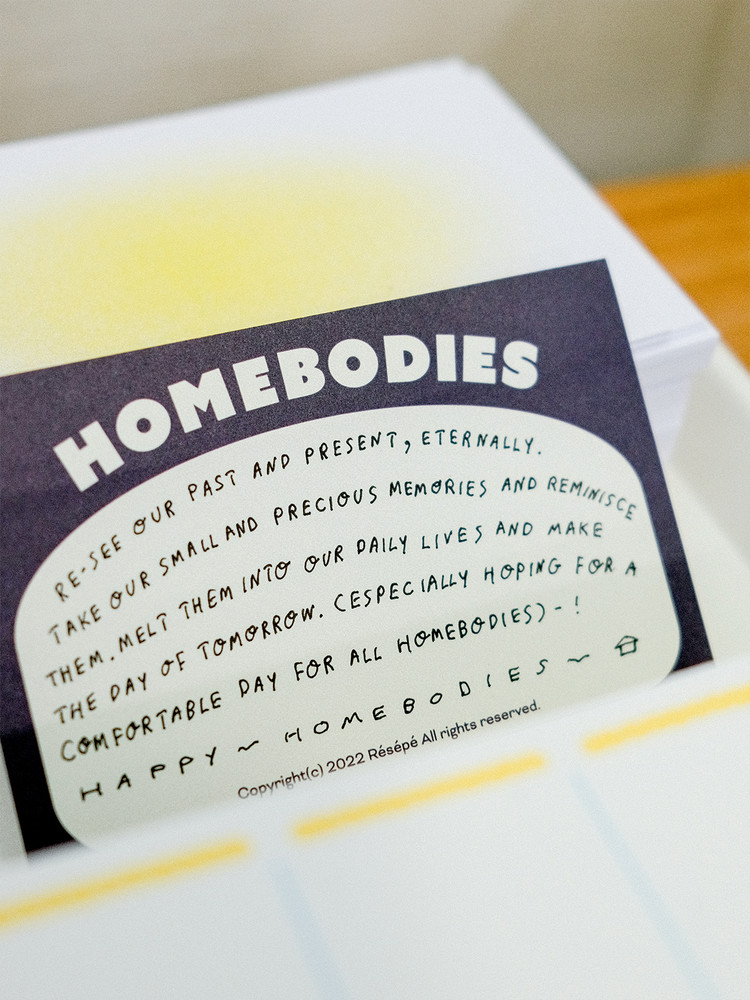 HOMEBODIES
RE-SEE OUR PAST AND PRESENT, ETERNALLY.
TAKE OUR SMALL AND PRECIOUS MEMORIES AND REMINISCE
THEM. MELT THEM INTO OUR DAILY LIVES AND MAKE
THE DAY OF TOMORROW. (ESPECIALLY HOPING FOR A
COMFORTABLE DAY FOR ALL HOMEBODIES) - !
HAPPY ~ HOMEBODIES ~
Copyright(c) 2022 Résépé All rights reserved.